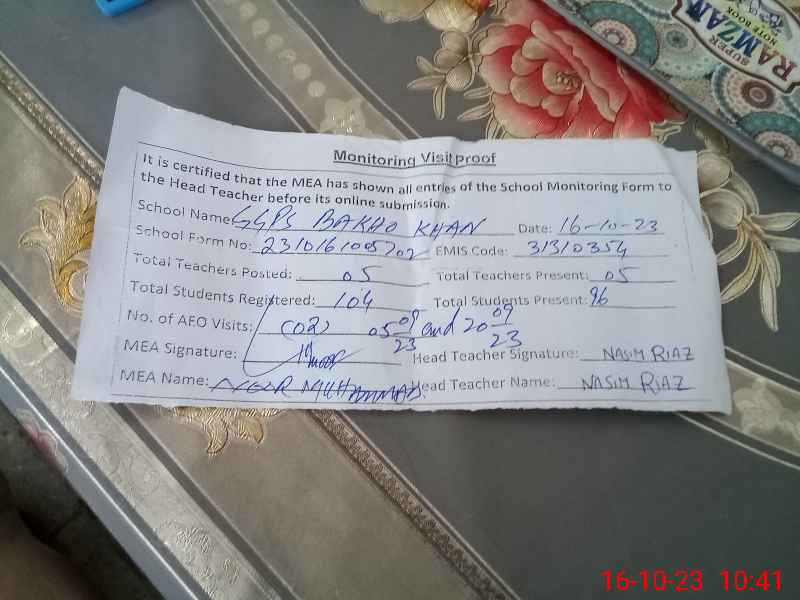 SUPER
RAMZAN
NOTE BOOK
Monitoring Visit proof
It is certified that the MEA has shown all entries of the School Monitoring Form to
the Head Teacher before its online submission.
School Name: GGPS BAKHO KHAN Date: 16-10-23
School Form No: 2310161005702 EMIS Code: 31310354
Total Teachers Posted: 05 Total Teachers Present: 05
Total Students Registered: 104 Total Students Present: 96
No. of AEO Visits: (02) 05 09/23 and 20 09/23
MEA Signature: Head Teacher Signature: NASIM RIAZ
MEA Name: NOOR MUHAMMAD. Head Teacher Name: NASIM RIAZ
16-10-23 10:41